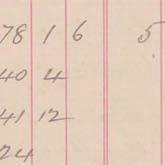 78 1 6 5
40 4
41 12
24